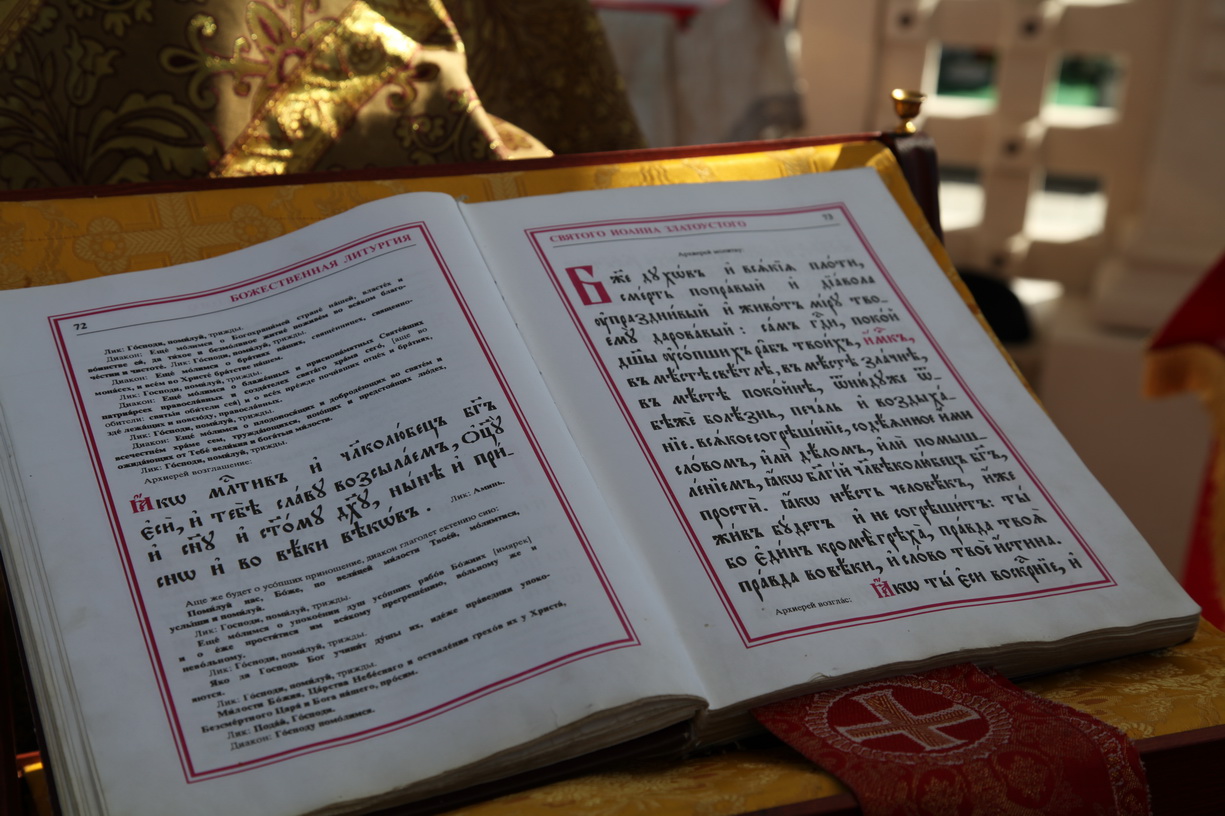 72
БОЖЕСТВЕННАЯ ЛИТУРГИЯ
Лик: Го́споди, поми́луй, трижды.
Диакон: Ещё мо́лимся о Богохрани́мей стране́ на́шей, власте́х и
во́инстве ея́, да ти́хое и безмо́лвное житие́ поживе́м во вся́ком благо-
че́стии и чистоте́. Лик: Го́споди, поми́луй, трижды.
Диакон: Ещё мо́лимся о бра́тиях на́ших, свяще́нницех, священно-
мона́сех, и всем во Христе́ бра́тстве на́шем.
Лик: Го́споди, поми́луй, трижды.
Диакон: Ещё мо́лимся о блаже́нных и приснопа́мятных Святе́йших
патриа́рсех правосла́вных и созда́телех свята́го хра́ма сего́, [аще во
обители: святы́я оби́тели сея́] и о всех пре́жде почи́вших отце́х и бра́тиях,
зде лежа́щих и повсю́ду, правосла́вных.
Лик: Го́споди, поми́луй, трижды.
Диакон: Ещё мо́лимся о плодонося́щих и доброде́ющих во святе́м и
всечестне́м хра́ме сем, тружда́ющихся, пою́щих и предстоя́щих лю́дех,
ожида́ющих от Тебе́ вели́кия и бога́тыя ми́лости.
Лик: Го́споди, поми́луй, трижды.
Архиерей возглашение:
Ꙗ҆́кѡ мл҃тивъ и҆ чл҃колю́бецъ бг҃ъ
є҆сѝ, и҆ тебѣ̀ сла́вꙋ возсыла́емъ, ѻ҆ц҃ꙋ̀
и҆ сн҃ꙋ и҆ ст҃о́мꙋ дх҃ꙋ, ны́нѣ и҆ при́-
снѡ и҆ во вѣ́ки вѣкѡ́въ.
Лик: Аминь.
Аще же будет о усопших приношение, диакон глаголет ектению сию:
Поми́луй нас, Бо́же, по вели́цей ми́лости Твое́й, мо́лимтися,
услы́ши и поми́луй.
Лик: Го́споди, поми́луй, трижды.
Ещё мо́лимся о упокое́нии душ усо́пших рабо́в Бо́жиих [имярек]
и о е́же прости́тися им вся́кому прегреше́нию, во́льному же и
нево́льному.
Лик: Го́споди, поми́луй, трижды.
Я́ко да Госпо́дь Бог учини́т ду́шы их, иде́же пра́веднии упоко-
я́ются.
Лик: Го́споди, поми́луй, трижды.
Ми́лости Бо́жия, Ца́рства Небе́снаго и оставле́ния грехо́в их у Христа́,
Безсме́ртного Царя́ и Бо́га на́шего, про́сим.
Лик: Пода́й, Го́споди.
Диакон: Го́споду помо́лимся.
СВЯТОГО ИОАННА ЗЛАТОУСТОГО
73
Архиерей молитву:
Бж҃е дꙋхѡ́въ и҆ всѧ́кїѧ пло́ти,
сме́рть попра́вый и҆ дїа́вола
ᲂу҆праздни́вый и҆ живо́тъ мі́рꙋ тво-
емꙋ̀ дарова́вый: са́мъ гдⷭ҇и, поко́й
дꙋ́шы ᲂу҆со́пшихъ ра̑бъ твои́хъ, и҆м҃къ,
въ мѣ́стѣ свѣ́тлѣ, въ мѣ́стѣ зла́чнѣ,
въ мѣ́стѣ поко́йнѣ, ѿню́дꙋже ѿ-
бѣжѐ болѣ́знь, печа́ль и҆ воздыха́-
нїе. всѧ́кое согрѣше́нїе, содѣ́ѧнное и҆́ми
сло́вомъ, и҆лѝ дѣ́ломъ, и҆лѝ помыш-
ле́нїемъ, ꙗ҆́кѡ бл҃гі́й чл҃вѣколю́бецъ бг҃ъ,
простѝ. ꙗ҆́кѡ нѣ́сть человѣ́къ, и҆́же
жи́въ бꙋ́детъ и҆ не согрѣши́тъ: ты́
во є҆ди́нъ кромѣ̀ грѣха̀, пра́вда твоѧ̀
пра́вда во вѣ́ки, и҆ сло́во твоѐ и҆́стина.
Архиерей возглас:
Ꙗ҆́кѡ ты̀ є҆сѝ воскр҃нїе, и҆